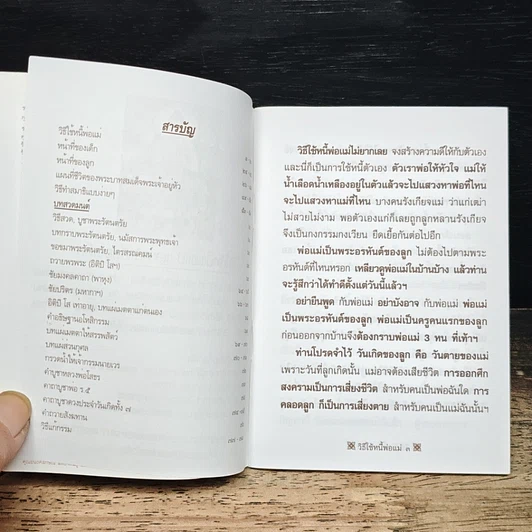 สารบัญ
วิธีใช้หนี้พ่อแม่
หน้าที่ของเด็ก
หน้าที่ของลูก
แผนที่ชีวิตของพระบาทสมเด็จพระเจ้าอยู่หัว
วิธีทำสมาธิแบบง่ายๆ
บทสวดมนต์
วิธีสวด, บูชาพระรัตนตรัย
บทกราบพระรัตนตรัย, นมัสการพระพุทธเจ้า
ขอขมาพระรัตนตรัย, ไตรสรณคมน์
ถวายพรพระ (อิติปิ โสฯ)
ชัยมงคลคาถา (พาหุง)
ชัยปริตร (มหากาฯ)
อิติปิ โส เท่าอายุ, บทแผ่เมตตาแก่ตนเอง
คำอธิษฐานอโหสิกรรม
บทแผ่เมตตาให้สรรพสัตว์
บทแผ่ส่วนกุศล
กรวดน้ำให้เจ้ากรรมนายเวร
คำบูชาหลวงพ่อโสธร
คาถาบูชาพ่อ ร.๕
คาถาบูชาดวงประจำวันเกิดทั้ง ๗
คำถวายสังฆทาน
วิธีแก้กรรม
วิธีใช้หนี้พ่อแม่ไม่ยากเลย จงสร้างความดีให้กับตัวเอง
และนี่ก็เป็นการใช้หนี้ตัวเอง ตัวเราพ่อให้หัวใจ แม่ให้
น้ำเลือดน้ำเหลืองอยู่ในตัวแล้วจะไปแสวงหาพ่อที่ไหน
จะไปแสวงหาแม่ที่ไหน บางคนรังเกียจแม่ ว่าแก่เฒ่า
ไม่สวยไม่งาม พอตัวเองแก่ก็เลยถูกลูกหลานรังเกียจ
จึงเป็นกงกรรมกงเวียน ยืดเยื้อกันต่อไปอีก
พ่อแม่เป็นพระอรหันต์ของลูก ไม่ต้องไปตามพระ
อรหันต์ที่ไหนหรอก เหลียวดูพ่อแม่ในบ้านบ้าง แล้วท่าน
จะรู้สึกว่าได้ทำดีตั้งแต่วันนี้แล้วฯ
อย่ายืนพูด กับพ่อแม่ อย่าบังอาจ กับพ่อแม่ พ่อแม่
เป็นพระอรหันต์ของลูก พ่อแม่เป็นครูคนแรกของลูก
ก่อนออกจากบ้านจึงต้องกราบพ่อแม่ 3 หน ที่เท้าฯ
ท่านโปรดจำไว้ วันเกิดของลูก คือ วันตายของแม่
เพราะวันที่ลูกเกิดนั้น แม่อาจต้องเสียชีวิต การออกศึก
สงครามเป็นการเสี่ยงชีวิต สำหรับคนเป็นพ่อฉันใด การ
คลอดลูก ก็เป็นการเสี่ยงตาย สำหรับคนเป็นแม่ฉันนั้นฯ
วิธีใช้หนี้พ่อแม่ ๓